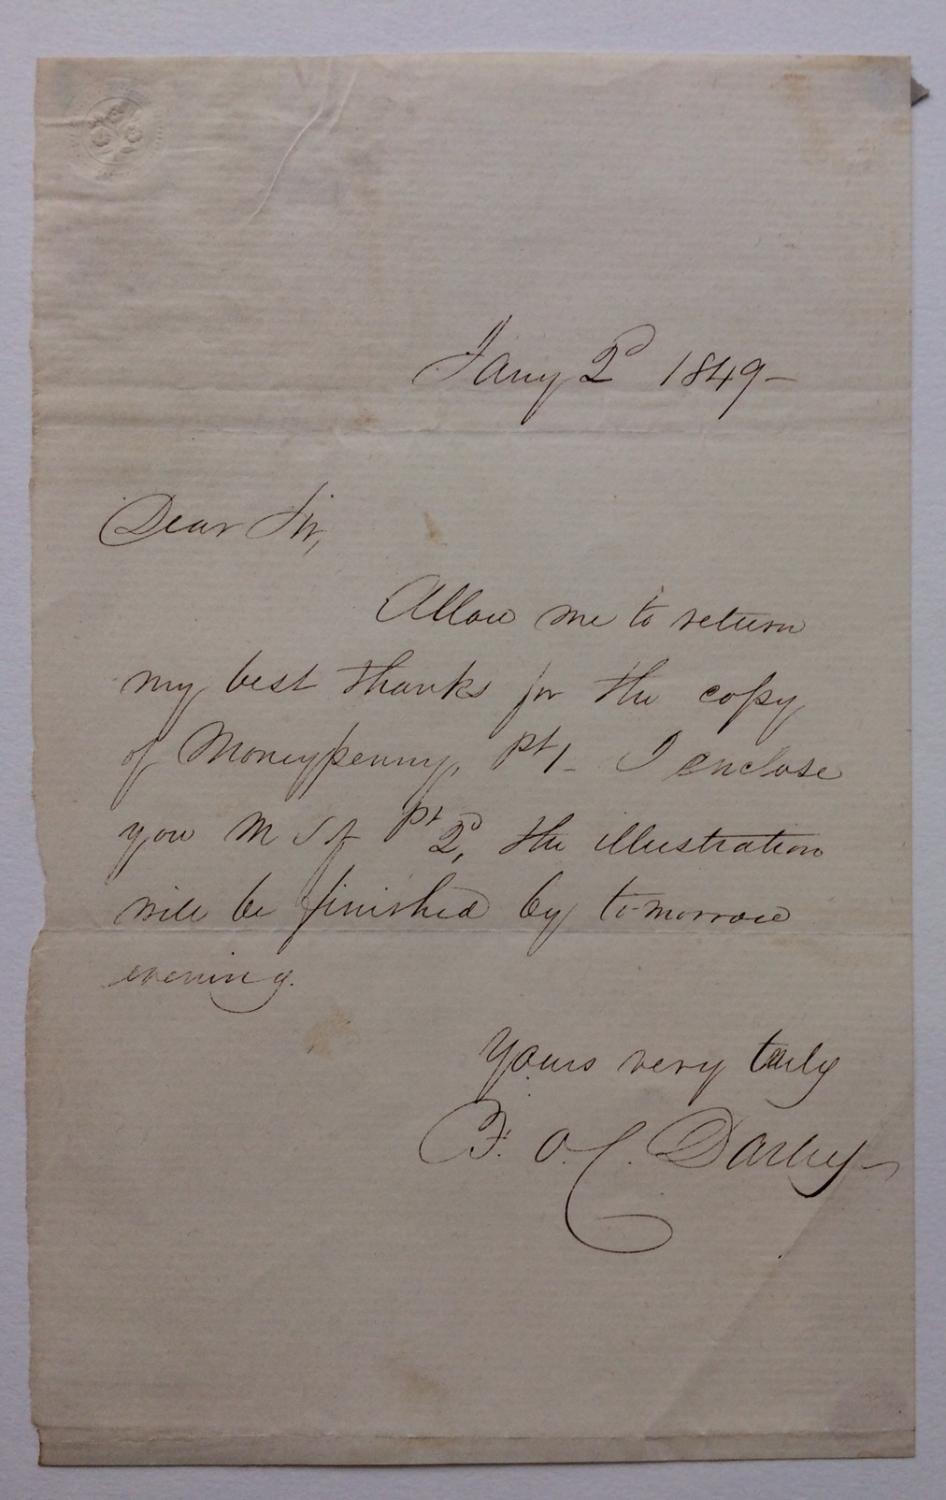 Jany 2d 1849-
Dear Sir,
Allow me to return
my best thanks for the copy
of Moneypenny, pt 1- I enclose
you M S of pt 2d, the illustration
will be finished by to-morrow
evening.
Yours very truly
F. O. C. Darley-